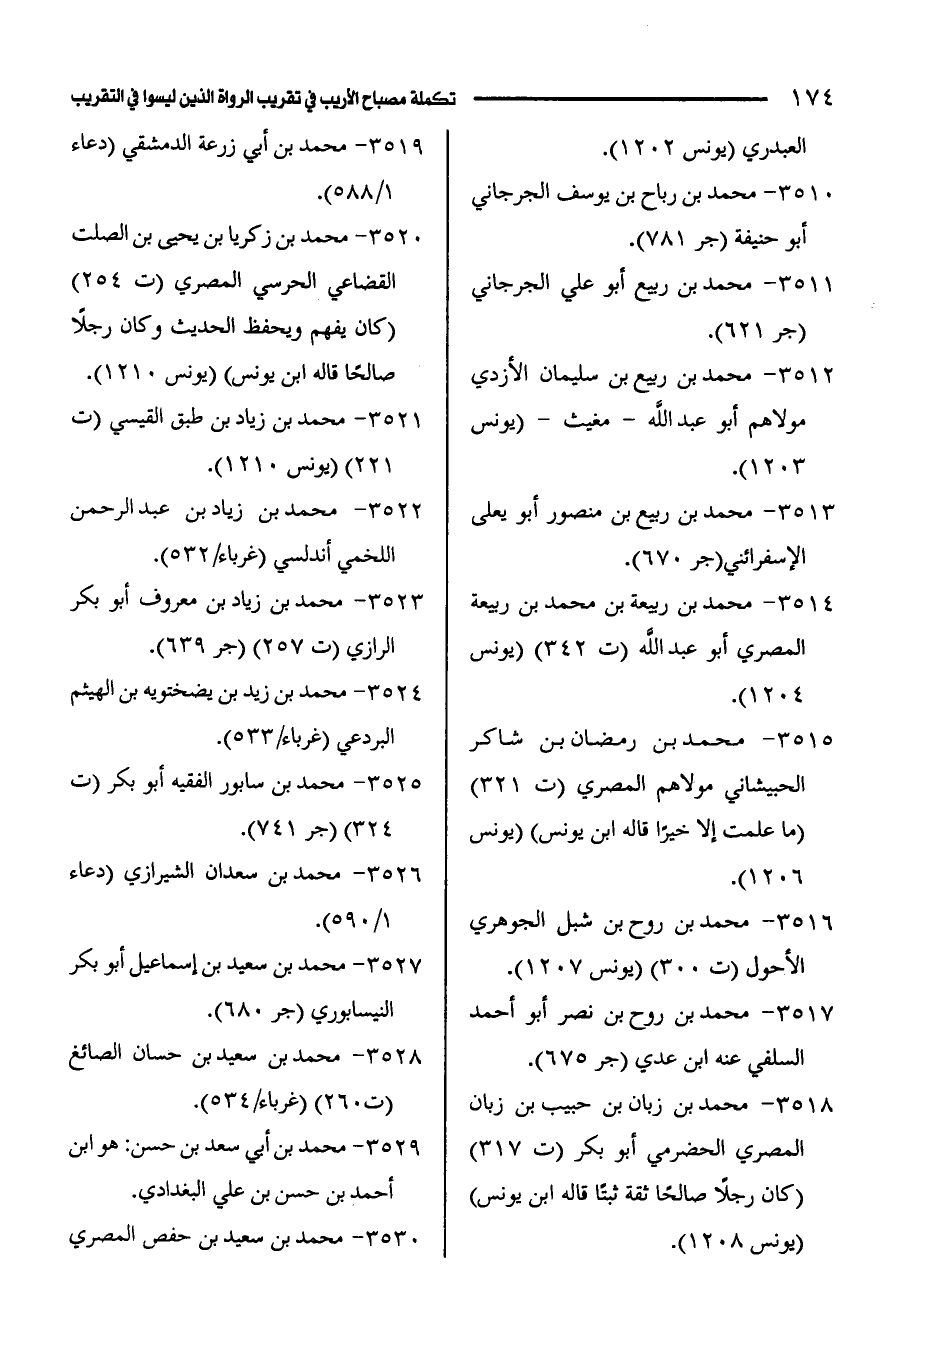 ١٧٤ تكملة مصباح الأريب في تقريب الرواة الذين ليسوا في التقريب
العبدري (يونس ١٢٠٢).
٣٥١٠- محمد بن رباح بن يوسف الجرجاني
أبو حنيفة (جر ٧٨١).
٣٥١١- محمد بن ربيع أبو علي الجرجاني
(جر ٦٢١).
٣٥١٢- محمد بن ربيع بن سليمان الأزدي
مولاهم أبو عبد الله - مغيث - (يونس
١٢٠٣).
٣٥١٣- محمد بن ربيع بن منصور أبو يعلى
الإسفرائني(جر ٦٧٠).
٣٥١٤- محمد بن ربيعة بن محمد بن ربيعة
المصري أبو عبد الله (ت ٣٤٢) (يونس
١٢٠٤).
٣٥١٥- محمد بن رمضان بن شاكر
الحبيشاني مولاهم المصري (ت ٣٢١)
(ما علمت إلا خيرًا قاله ابن يونس) (يونس
١٢٠٦).
٣٥١٦- محمد بن روح بن شبل الجوهري
الأحول (ت ٣٠٠) (يونس ١٢٠٧).
٣٥١٧- محمد بن روح بن نصر أبو أحمد
السلفي عنه ابن عدي (جر ٦٧٥).
٣٥١٨- محمد بن زبان بن حبيب بن زبان
المصري الحضرمي أبو بكر (ت ٣١٧)
(كان رجلًا صالحًا ثقة ثبتًا قاله ابن يونس)
(يونس ١٢٠٨).
٣٥١٩- محمد بن أبي زرعة الدمشقي (دعاء
٥٨٨/١).
٣٥٢٠- محمد بن زكريا بن يحيى بن الصلت
القضاعي الحرسي المصري (ت ٢٥٤)
(كان يفهم ويحفظ الحديث وكان رجلًا
صالحًا قاله ابن يونس) (يونس ١٢١٠).
٣٥٢١- محمد بن زياد بن طبق القيسي (ت
٢٢١) (يونس ١٢١٠).
٣٥٢٢- محمد بن زياد بن عبد الرحمن
اللخمي أندلسي (غرباء/٥٣٢).
٣٥٢٣- محمد بن زياد بن معروف أبو بكر
الرازي (ت ٢٥٧) (جر ٦٣٩).
٣٥٢٤- محمد بن زيد بن يضختويه بن الهيثم
البردعي (غرباء/٥٣٣).
٣٥٢٥- محمد بن سابور الفقيه أبو بكر (ت
٣٢٤) (جر ٧٤١).
٣٥٢٦- محمد بن سعدان الشيرازي (دعاء
٥٩٠/١).
٣٥٢٧- محمد بن سعيد بن إسماعيل أبو بكر
النيسابوري (جر ٦٨٠).
٣٥٢٨- محمد بن سعيد بن حسان الصائغ
(ت٢٦٠) (غرباء/٥٣٤).
٣٥٢٩- محمد بن أبي سعد بن حسن: هو ابن
أحمد بن حسن بن علي البغدادي.
٣٥٣٠- محمد بن سعيد بن حفص المصري